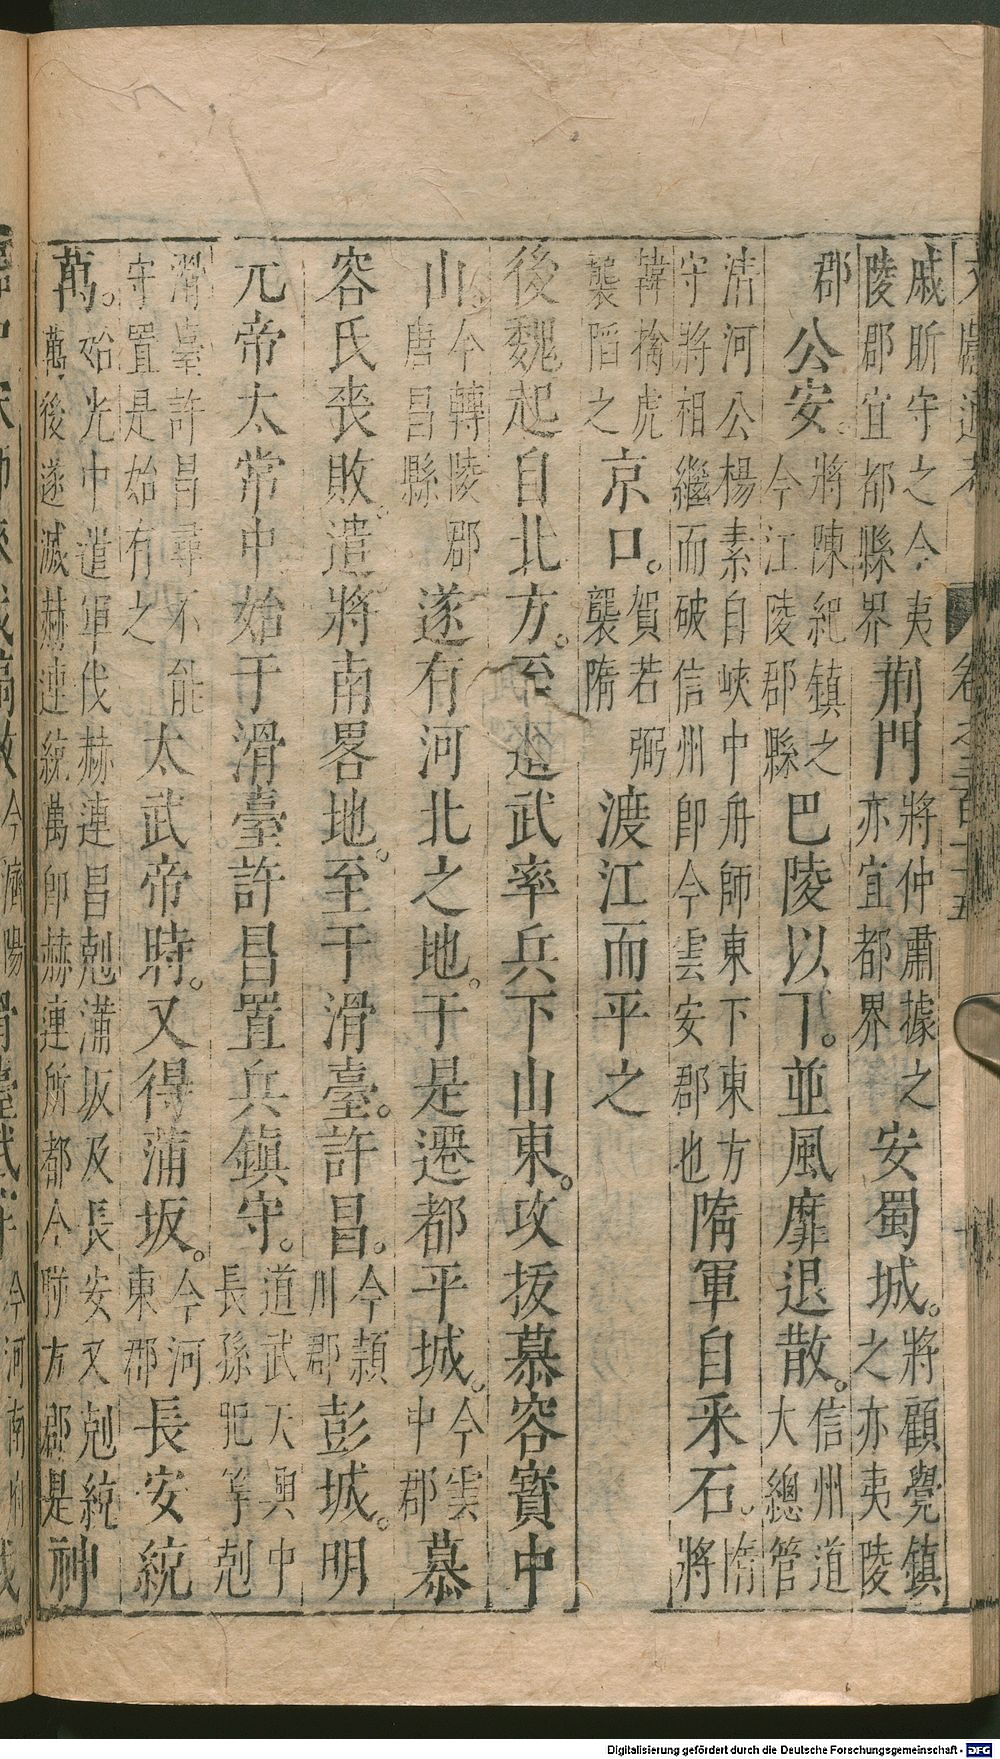 戚昕守之今夷陵郡宜都縣界荆門將仲肅據之亦宜都界安蜀城。將顧覺鎮之亦夷陵
郡公安。將陳紀鎮之今江陵郡縣巴陵以下。並風靡退散。信州道大總管
清河公楊素自峽中舟師東下東方守將相繼而破信州即今雲安郡也隋軍自采石。隋將
韓擒虎襲陷之京口。賀若弼襲隋渡江而平之
後魏起自北方。至道武率兵下山東。攻拔慕容寶中
山。今博陵郡唐昌縣遂有河北之地。于是遷都平城。今雲中郡慕
容氏喪敗。遣將南畧地。至于滑臺。許昌。今潁川郡彭城。明
元帝太常中始于滑臺許昌置兵鎮守。道武天興中長孫肥等剋
滑臺許昌尋不能守置是始有之太武帝時。又得蒲坂。今河東郡長安統
萬。始光中遣軍伐赫連昌剋蒲坂及長安又剋統萬後遂滅赫連統萬即赫連所都今朔方郡是神
卷之三百十五
Digitalisierung gefördert durch die Deutsche Forschungsgemeinschaft - DFG